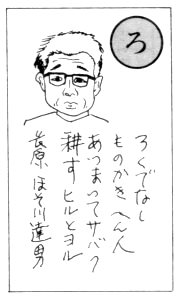 ろ
ろくでなし
ものかきへん人
あつまってサバク
耕す ヒルとヨル
長原 ほそ川達男